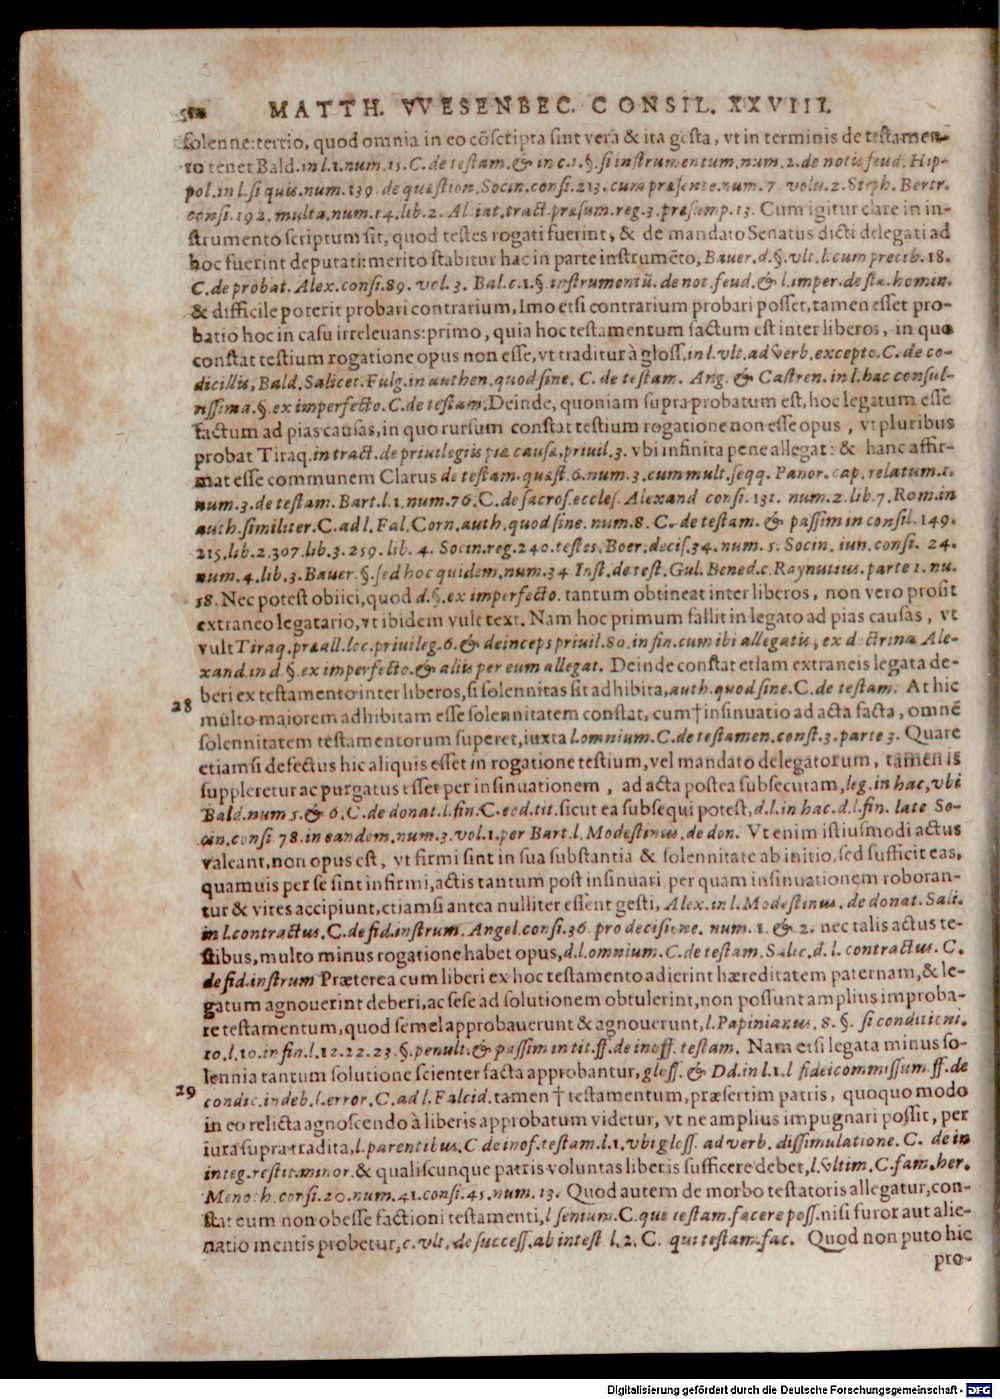 MATTH. VVESENBEC. CONSIL. XXVIII.
solenne: tertio, quod omnia in eo cōscripta sint vera & ita gesta, vt in terminis de testamen-
to tenet Bald. in l.1.num.15. C. de testam. & in c.1.§. si instrumentum.num. 2. de notis feud. Hip-
pol. in l. si quis.num.139 de quæstion. Socin. consi. 213. cum præsente.num. 7 volu. 2. Steph. Bertr.
consi. 192. multa.num.14.lib. 2. Alciat. tract. præsum. reg. 3. præsump. 13. Cum igitur clare in in-
strumento scriptum sit, quod testes rogati fuerint, & de mandato Senatus dicti delegati ad
hoc fuerint deputati: merito stabitur hac in parte instrumēto, Bauer. d. §. vlt. l. cum precib. 18.
C. de probat. Alex. consi. 89. vol. 3. Bal. c. 1. § instrumentū. de not. feud. & l. imper. de sta. homin.
& difficile poterit probari contrarium, Imo etsi contrarium probari posset, tamen esset pro-
batio hoc in casu irreleuans: primo, quia hoc testamentum factum est inter liberos, in quo
constat testium rogatione opus non esse, vt traditur à gloss. in l. vlt. ad verb. excepto. C. de co-
dicillis, Bald. Salicet. Fulg. in authen. quod sine. C. de testam. Ang. & Castren. in l. hac consul-
tissima. §. ex imperfecto. C. de testam. Deinde, quoniam supra probatum est, hoc legatum esse
factum ad pias causas, in quo rursum constat testium rogatione non esse opus, vt pluribus
probat Tiraq. in tract. de priuilegiis piæ causæ, priuil. 3. vbi infinita pene allegat: & hanc affir-
mat esse communem Clarus de testam. quæst. 6. num. 3. cum mult. seqq. Panor. cap. relatum. 1.
num. 3. de testam. Bart. l. 1. num. 76. C. de sacros. eccles. Alexand consi. 131. num. 2. lib. 7. Rom. in
auth. similiter. C. ad l. Fal. Corn. auth. quod sine. num. 8. C. de testam. & passim in consil. 149.
215. lib. 2. 307. lib. 3. 259. lib. 4. Socin. reg. 240. testes. Boer. decis. 34. num. 5. Socin. iun. consi. 24.
num. 4. lib. 3. Bauer. §. sed hoc quidem. num. 34 Inst. de test. Gul. Bened. c. Raynutius. parte 1. nu.
58. Nec potest obiici, quod d. §. ex imperfecto. tantum obtineat inter liberos, non vero prosit
extraneo legatario, vt ibidem vult text. Nam hoc primum fallit in legato ad pias causas, vt
vult Tiraq. præall. loc. priuileg. 6. & deinceps priuil. 80. in fin. cum ibi allegatis, ex d ctrina Ale-
xand. in d. §. ex imperfecto. & aliis per eum allegat. Deinde constat etiam extraneis legata de-
beri ex testamento inter liberos, si solennitas sit adhibita, auth. quod sine. C. de testam. At hic
28 multo maiorem adhibitam esse solennitatem constat, cum † insinuatio ad acta facta, omnē
solennitatem testamentorum superet, iuxta l. omnium. C. de testamen. const. 3. parte 3. Quare
etiamsi defectus hic aliquis esset in rogatione testium, vel mandato delegatorum, tamen is
suppleretur ac purgatus esset per insinuationem, ad acta postea subsecutam, leg. in hac, vbi
Bald. num 5. & 6. C. de donat. l. fin. C. eod. tit. sicut ea subsequi potest, d. l. in hac. d. l. fin. late So-
cin. consi 78. in eandem. num. 3. vol. 1. per Bart. l. Modestinus. de don. Vt enim istiusmodi actus
valeant, non opus est, vt firmi sint in sua substantia & solennitate ab initio, sed sufficit eas,
quamuis per se sint infirmi, actis tantum post insinuari per quam insinuationem roboran-
tur & vires accipiunt, etiamsi antea nulliter essent gesti, Alex. in l. Modestinus. de donat. Sali.
in l. contractus. C. de fid. instrum. Angel. consi. 36. pro decisione. num. 1. & 2. nec talis actus te-
stibus, multo minus rogatione habet opus, d. l. omnium. C. de testam. Salic. d. l. contractus. C.
de fid. instrum Præterea cum liberi ex hoc testamento adierint hæreditatem paternam, & le-
gatum agnouerint deberi, ac sese ad solutionem obtulerint, non possunt amplius improba-
re testamentum, quod semel approbauerunt & agnouerunt, l. Papinianus. 8. §. si conditioni.
10. l. 10. in fin. l. 12. 22. 23. §. penult. & passim in tit. ff. de inoff. testam. Nam etsi legata minus so-
lennia tantum solutione scienter facta approbantur, gloss. & Dd. in l. 1. l fideicommissum ff. de
29 condic. indeb. l. error. C. ad l. Falcid. tamen † testamentum, præsertim patris, quoquo modo
in eo relicta agnoscendo à liberis approbatum videtur, vt ne amplius impugnari possit, per
iura supra tradita, l. parentibus. C de inof. testam. l. 1. vbi gloss. ad verb. dissimulatione. C. de in
integ. restit. minor. & qualiscunque patris voluntas liberis sufficere debet, l. vltim. C. fam. her.
Menoch. consi. 20. num. 41. consi. 45. num. 13. Quod autem de morbo testatoris allegatur, con-
stat eum non obesse factioni testamenti, l senium. C. qui testam. facere poss. nisi furor aut alie-
natio mentis probetur, c. vlt. de success. ab intest l. 2. C. qui testam. fac. Quod non puto hic
pro-
Digitalisierung gefördert durch die Deutsche Forschungsgemeinschaft - DFG